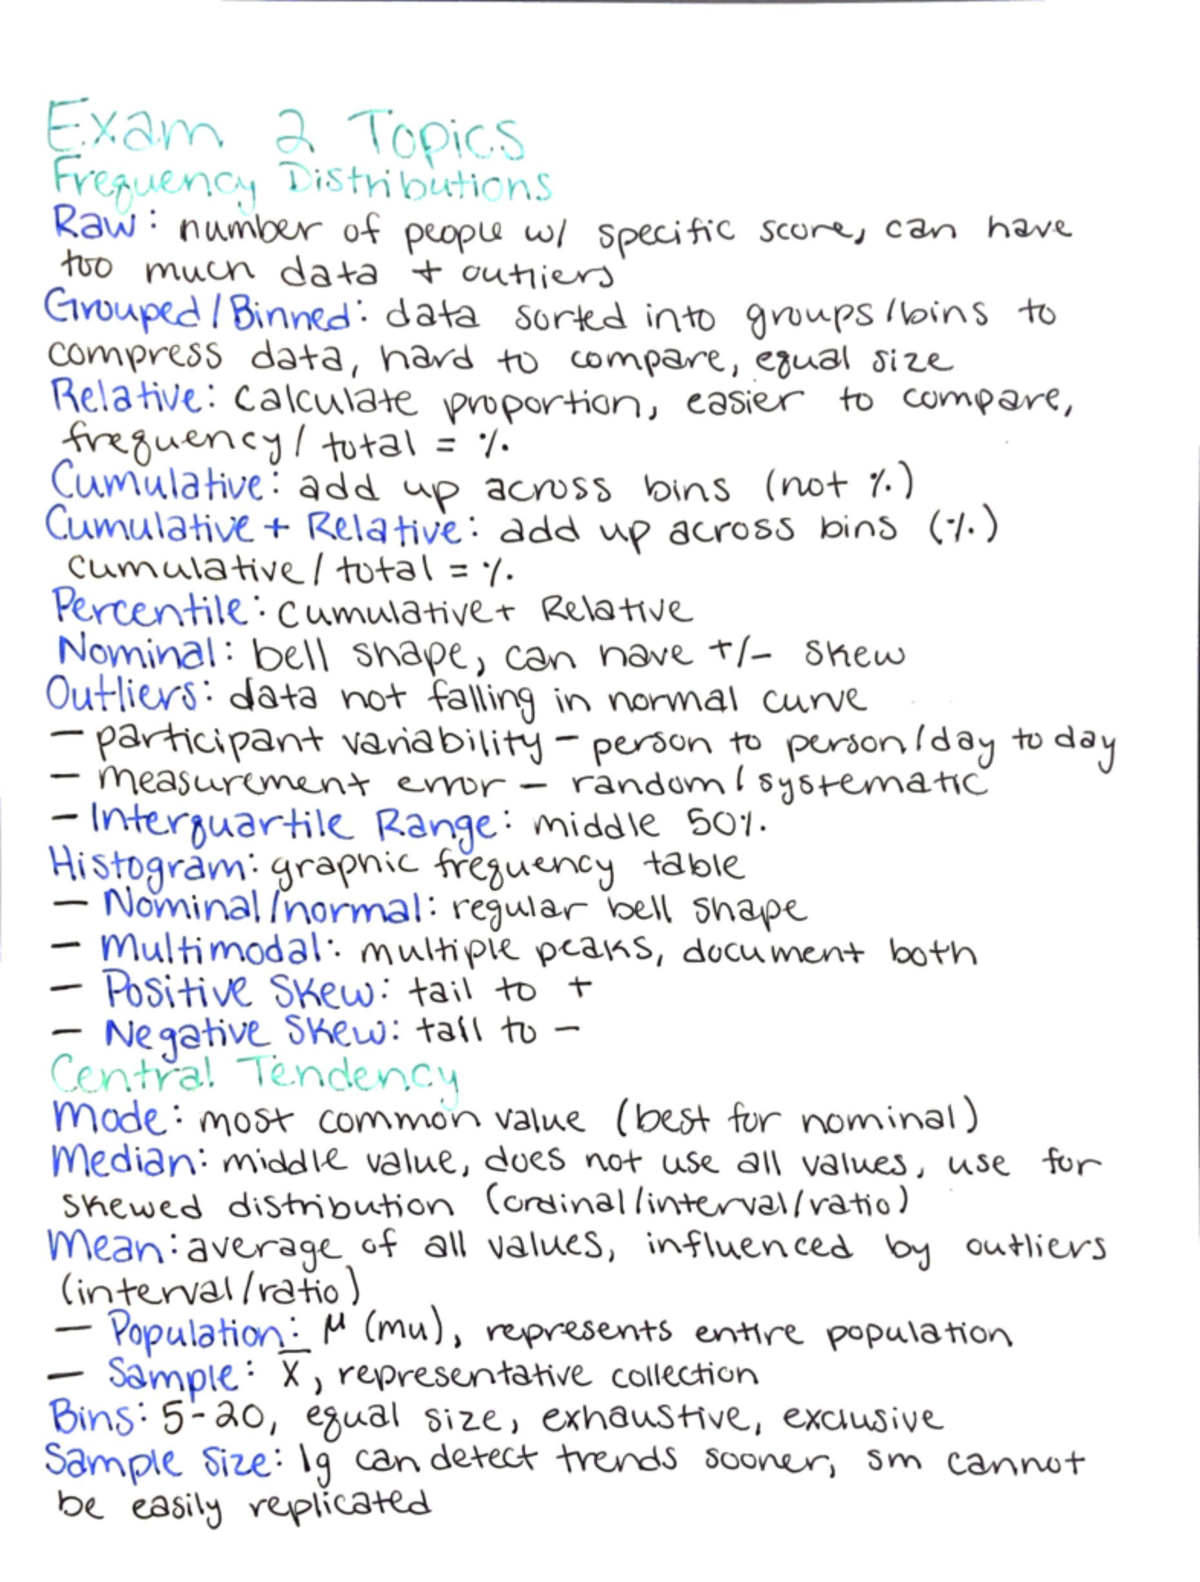 Exam 2 Topics
Frequency Distributions
Raw: number of people w/ specific score, can have
too much data + outliers
Grouped/Binned: data sorted into groups/bins to
compress data, hard to compare, equal size
Relative: calculate proportion, easier to compare,
frequency/total = %.
Cumulative: add up across bins (not %)
Cumulative + Relative: add up across bins (%)
cumulative/total = %.
Percentile: Cumulative + Relative
Nominal: bell shape, can have +/- skew
Outliers: data not falling in normal curve
— participant variability – person to person/day to day
— measurement error – random/systematic
— Interquartile Range: middle 50%.
Histogram: graphic frequency table
— Nominal/normal: regular bell shape
— Multimodal: multiple peaks, document both
— Positive Skew: tail to +
— Negative Skew: tail to –
Central Tendency
Mode: most common value (best for nominal)
Median: middle value, does not use all values, use for
skewed distribution (ordinal/interval/ratio)
Mean: average of all values, influenced by outliers
(interval/ratio)
— Population: μ (mu), represents entire population
— Sample: x̄, representative collection
Bins: 5-20, equal size, exhaustive, exclusive
Sample Size: lg can detect trends sooner, sm cannot
be easily replicated